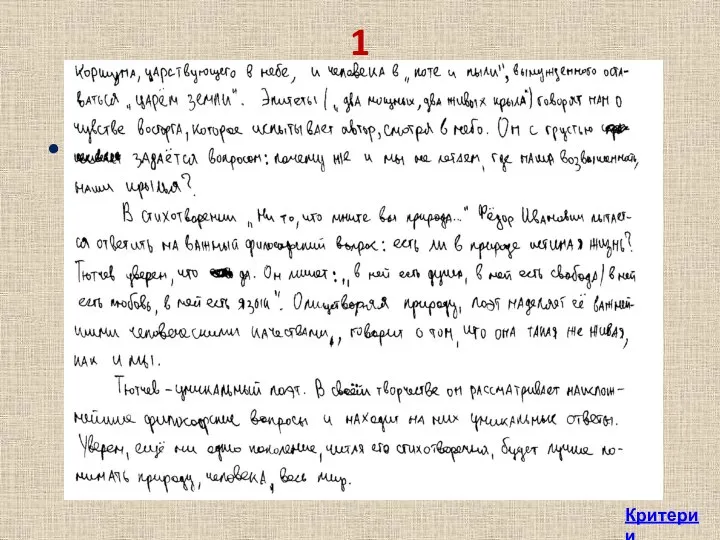 1
коршуна, царствующего в небе, и человека в „поте и пыли", вынужденного оста-
ваться „царём земли". Эпитеты („два мощных, два живых крыла") говорят нам о
чувстве восторга, которое испытывает автор, смотря в небо. Он с грустью
задаётся вопросом: почему же и мы не летаем, где наша возвышенность,
наши крылья?
В стихотворении „Не то, что мните вы природа..." Фёдор Иванович пытает-
ся ответить на важный философский вопрос: есть ли в природе истинная жизнь?
Тютчев уверен, что да. Он пишет: „в ней есть душа, в ней есть свобода/в ней
есть любовь, в ней есть язык". Олицетворяя природу, поэт наделяет её важней-
шими человеческими качествами, говорит о том, что она такая же живая,
как и мы.
Тютчев – уникальный поэт. В своём творчестве он рассматривает наислож-
нейшие философские вопросы и находит на них уникальные ответы.
Уверен, ещё ни одно поколение, читая его стихотворения, будет лучше по-
нимать природу, человека, весь мир.
Критери
и